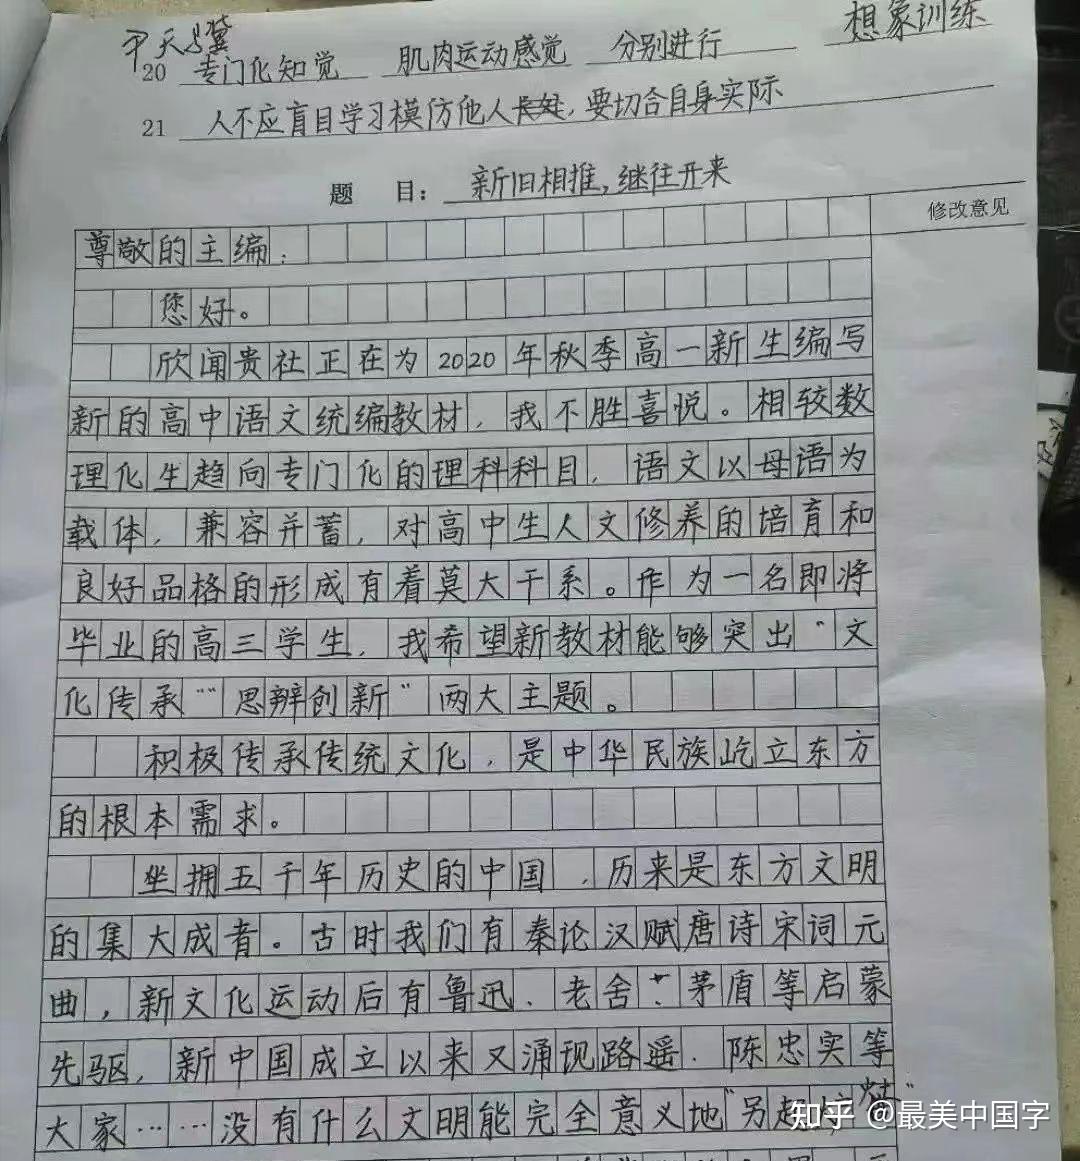 尹天骥
想象训练
20 专门化知觉 肌肉运动感觉 分别进行
21 人不应盲目学习模仿他人长处,要切合自身实际
题 目: 新旧相推,继往开来
修改意见
尊敬的主编:
您好。
欣闻贵社正在为2020年秋季高一新生编写
新的高中语文统编教材,我不胜喜悦。相较数
理化生趋向专门化的理科科目,语文以母语为
载体,兼容并蓄,对高中生人文修养的培育和
良好品格的形成有着莫大干系。作为一名即将
毕业的高三学生,我希望新教材能够突出“文
化传承”“思辨创新”两大主题。
积极传承传统文化,是中华民族屹立东方
的根本需求。
坐拥五千年历史的中国,历来是东方文明
的集大成者。古时我们有秦论汉赋唐诗宋词元
曲,新文化运动后有鲁迅、老舍、茅盾等启蒙
先驱,新中国成立以来又涌现路遥、陈忠实等
大家……没有什么文明能完全意义地“另起炉
知乎 @最美中国字